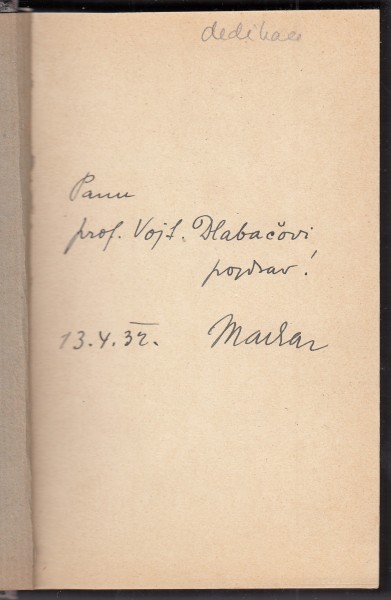 dedikace
Panu
prof. Vojt. Dlabačovi
pozdrav!
13.4.32. Machar